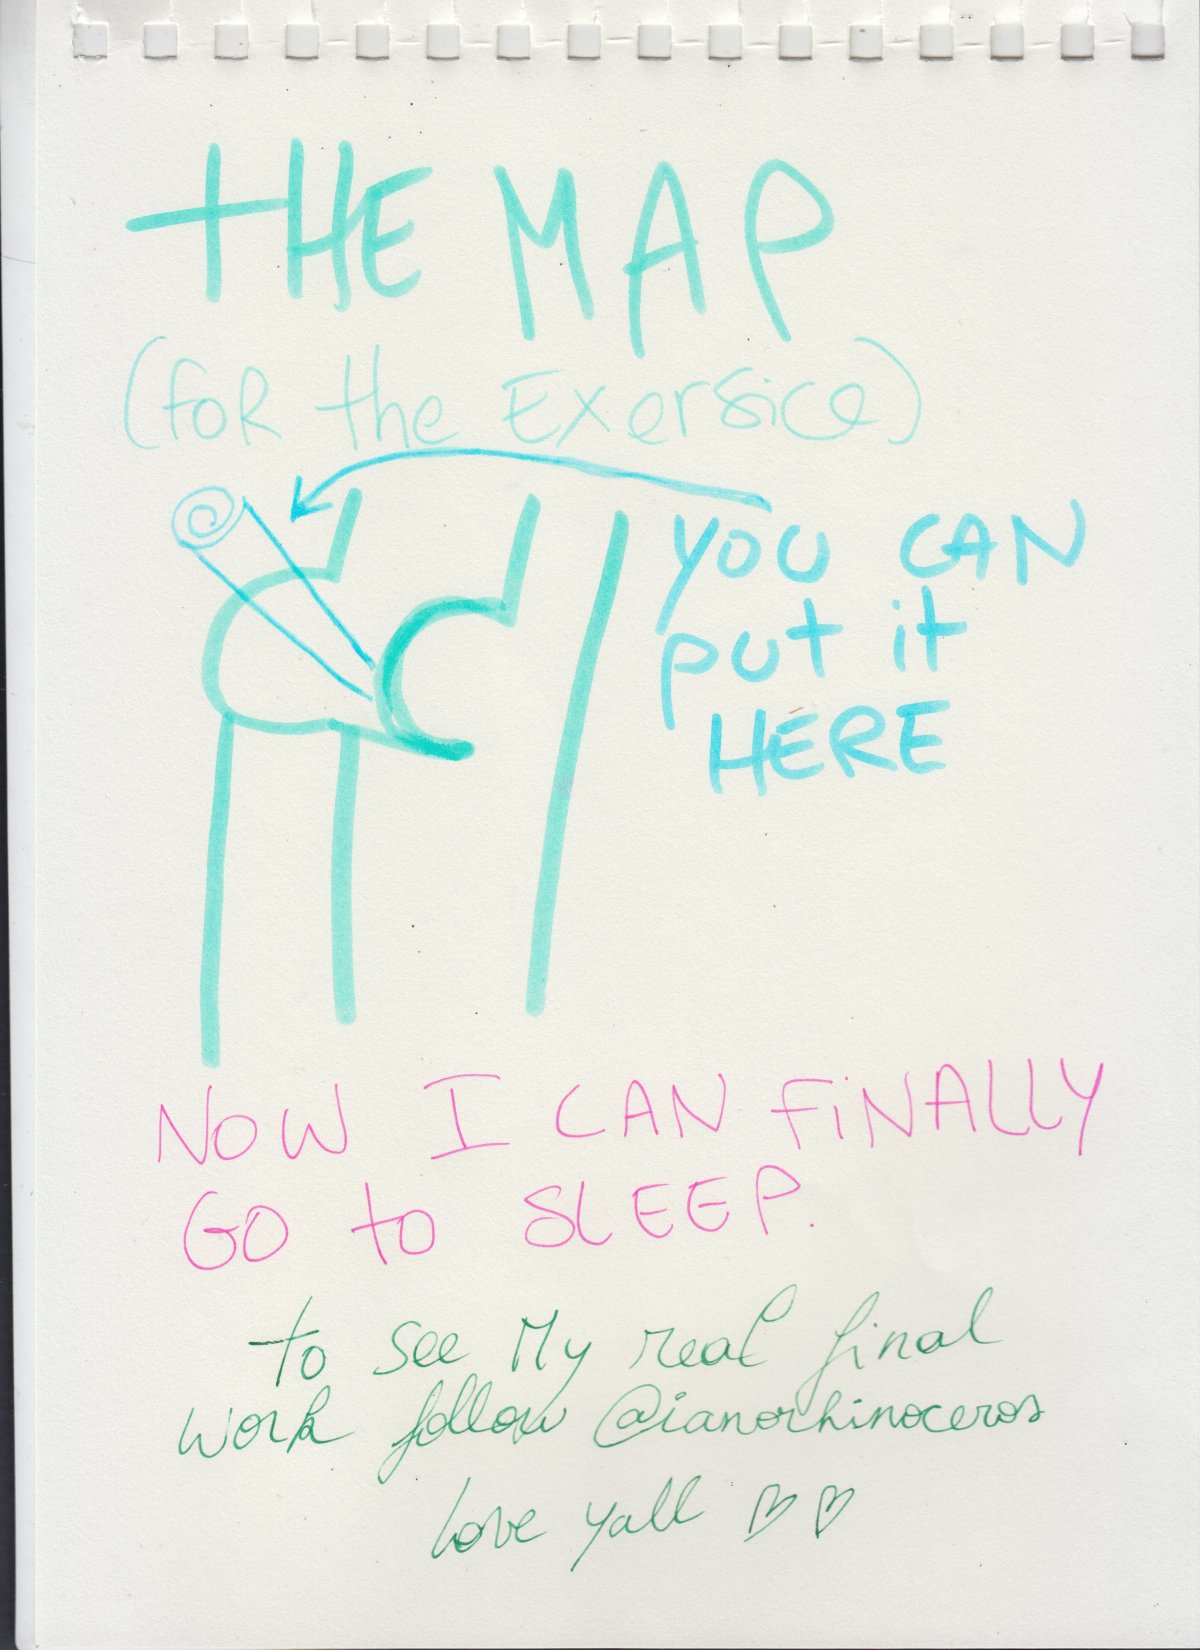 THE MAP
(FOR the Exersice)
YOU CAN
put it
HERE
NOW I CAN FiNALLY
GO to SLEEP.
to see My real final
work follow @ianorhinoceros
love yall ♡♡